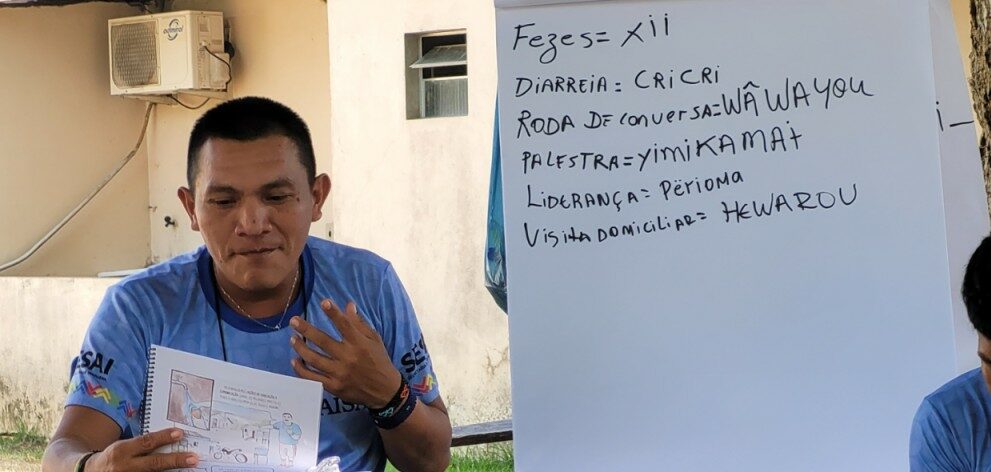 Fezes = xii
DIARREIA = CRICRI
RODA DE conversa = WÂWAYOU
PALESTRA = YIMIKAMAɨ
LIDERANÇA = PËRIOMA
VISITA DOMICILIAR = HEWAROU
SESAI